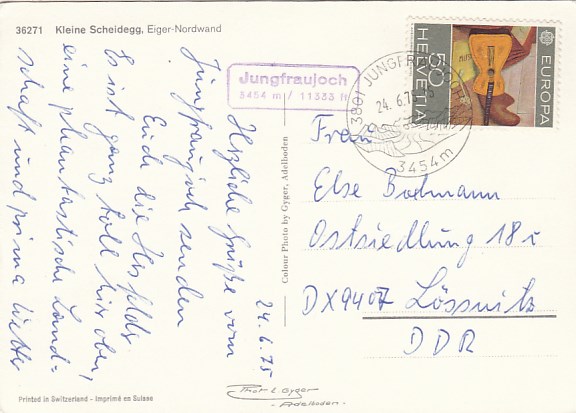 36271 Kleine Scheidegg, Eiger-Nordwand
Jungfraujoch
3454 m / 11333 ft
24.6.75
Herzliche Grüße vom
Jungfraujoch senden
Euch die Hesfelds
Es ist ganz toll hier oben,
eine phantastische Land-
schaft und prima Wetter
Colour Photo by Gyger, Adelboden
HELVETIA
50
EUROPA
3801 JUNGFRAUJOCH
24.6.75
3454m
Frau
Else Bochmann
Ostsiedlung 18
DX9407 Lössnitz
DDR
Phot E. Gyger
- Adelboden -
Printed in Switzerland - Imprimé en Suisse